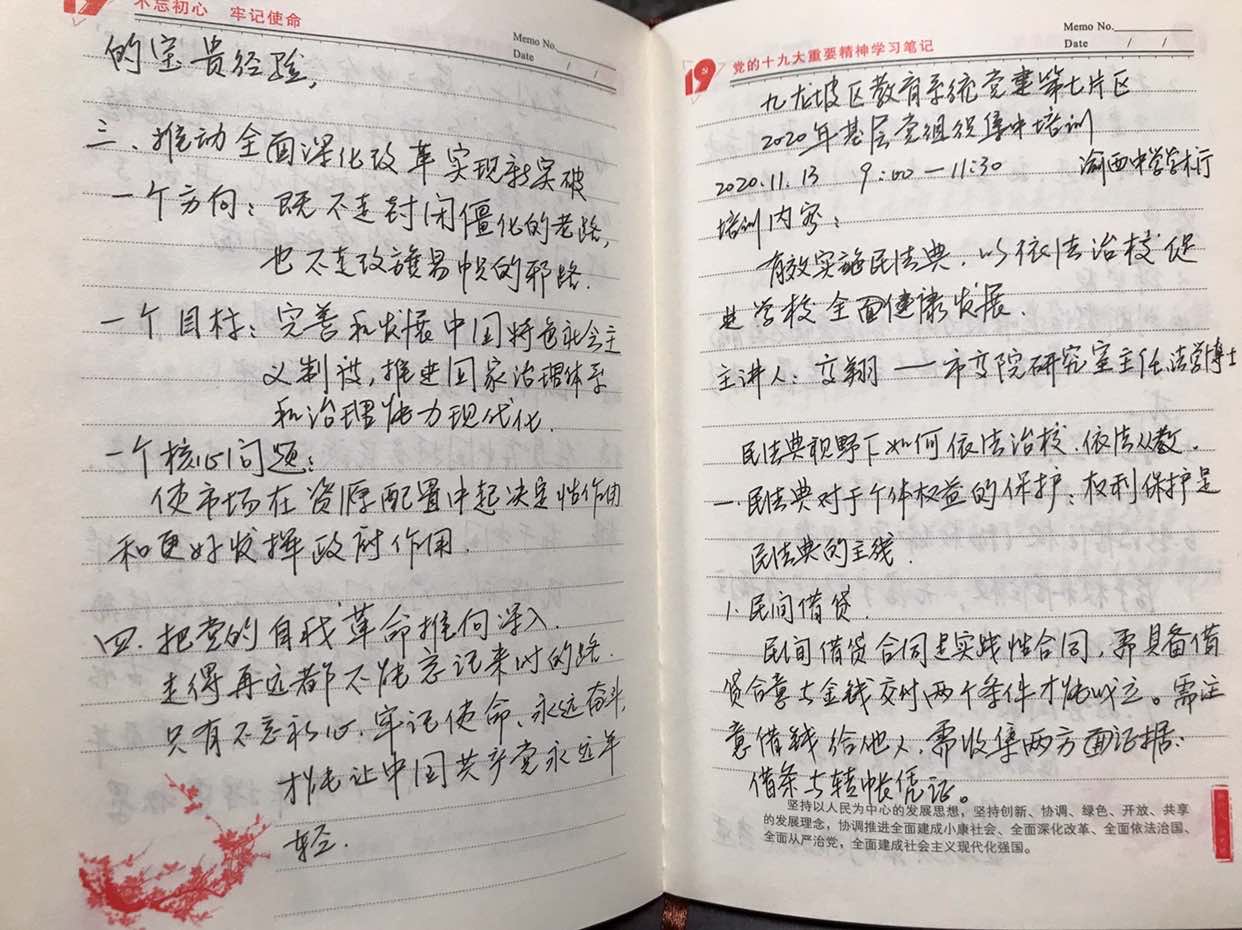 不忘初心 牢记使命
Memo No.
Date / /
的宝贵经验,
三、推动全面深化改革实现新突破
一个方向：既不走封闭僵化的老路,
也不走改旗易帜的邪路.
一个目标：完善和发展中国特色社会主
义制度,推进国家治理体系
和治理能力现代化.
一个核心问题：
使市场在资源配置中起决定性作用
和更好发挥政府作用.
四.把党的自我革命推向深入.
走得再远都不能忘记来时的路.
只有不忘初心,牢记使命、永远奋斗,
才能让中国共产党永远年
轻.
19 党的十九大重要精神学习笔记
Memo No.
Date / /
九龙坡区教育系统党建第七片区
2020年基层党组织集中培训
2020.11.13 9:00—11:30 渝西中学学术厅
培训内容：
有效实施民法典.以依法治校促
进学校全面健康发展.
主讲人：文翔——市文院研究室主任,法学博士
民法典视野下如何依法治校.依法从教.
一.民法典对于个体权益的保护：权利保护是
民法典的主线.
1.民间借贷.
民间借贷合同是实践性合同,需具备借
贷合意与金钱交付两个条件才能成立。需注
意借钱给他人,需收集两方面证据：
借条与转帐凭证。
坚持以人民为中心的发展思想，坚持创新、协调、绿色、开放、共享
的发展理念，协调推进全面建成小康社会、全面深化改革、全面依法治国、
全面从严治党，全面建成社会主义现代化强国。